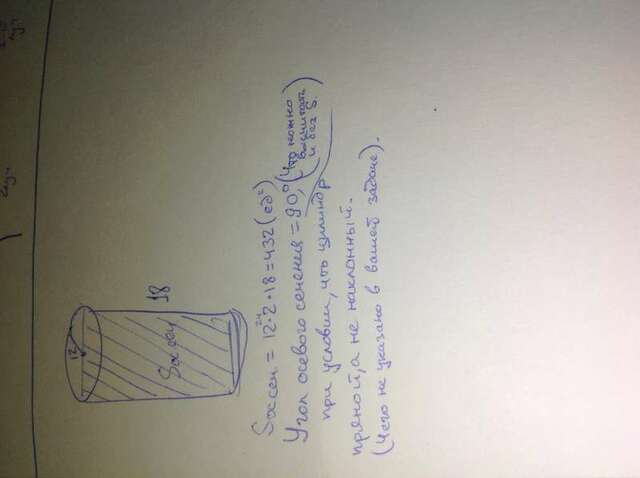 12
18
Sос.сеч
Sос.сеч = 12·2·18 = 432 (ед²)
24
Угол осевого сечения = 90°, (что можно
высчитать
и без S.)
при условии, что цилиндр
прямой, а не наклонный.
(чего не указано в вашей задаче).